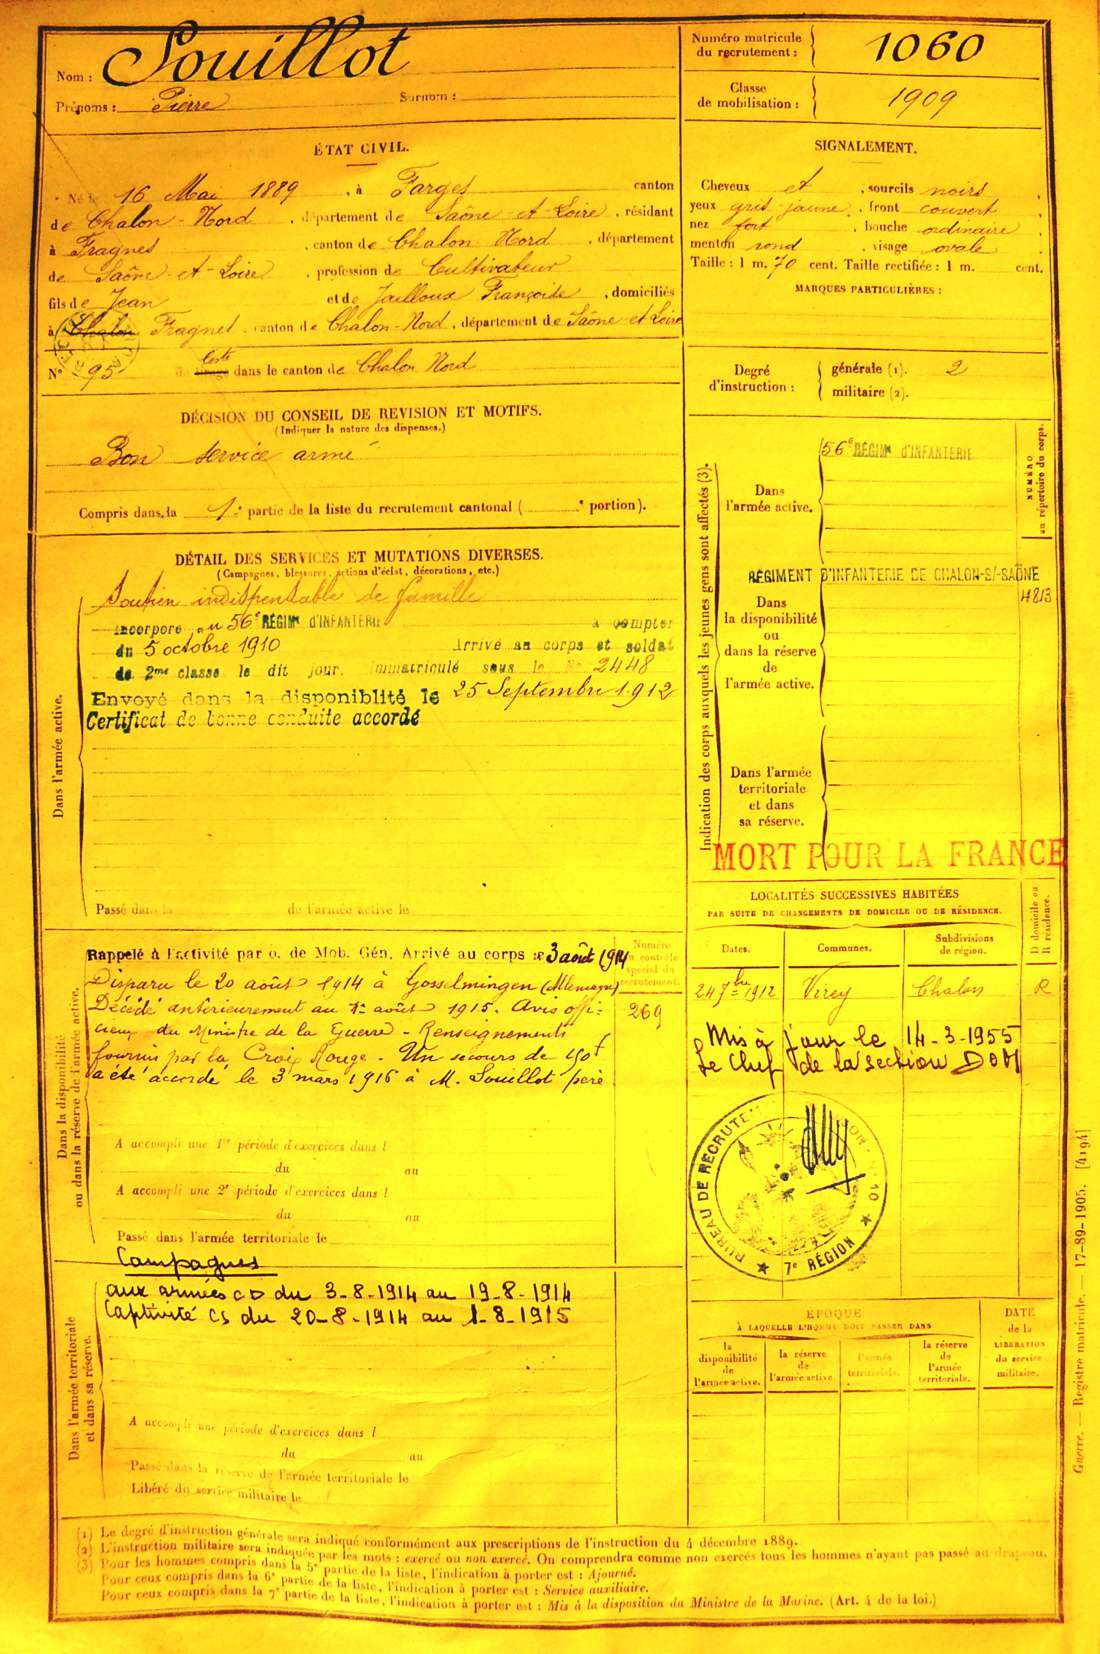 Nom : Souillot
Prénoms : Pierre Surnom :
Numéro matricule du recrutement : 1060
Classe de mobilisation : 1909
ÉTAT CIVIL.
Né le 16 Mai 1889, à Farges canton
de Chalon-Nord, département de Saône-et-Loire, résidant
à Fragnes, canton de Chalon Nord, département
de Saône-et-Loire, profession de Cultivateur
fils de Jean et de Jailloux Françoise, domiciliés
à Chalon Fragnes, canton de Chalon-Nord, département de Saône-et-Loire
N° 95 de tirage liste dans le canton de Chalon Nord
SIGNALEMENT.
Cheveux et, sourcils noirs,
yeux gris-jaune, front couvert,
nez fort, bouche ordinaire,
menton rond, visage ovale
Taille : 1 m. 70 cent. Taille rectifiée : 1 m. cent.
MARQUES PARTICULIÈRES :
Degré d'instruction : générale (1). 2
militaire (2).
DÉCISION DU CONSEIL DE REVISION ET MOTIFS.
(Indiquer la nature des dispenses.)
Bon service armé
Compris dans la 1e partie de la liste du recrutement cantonal ( e portion).
DÉTAIL DES SERVICES ET MUTATIONS DIVERSES.
(Campagnes, blessures, actions d'éclat, décorations, etc.)
Dans l'armée active.
Soutien indispensable de famille
incorporé au 56e RÉGIMt D'INFANTERIE à compter
du 5 octobre 1910 Arrivé au corps et soldat
de 2me classe le dit jour. Immatriculé sous le No 2448
Envoyé dans la disponiblité le 25 Septembre 1912
Certificat de bonne conduite accordé
Passé dans la de l'armée active le
Indication des corps auxquels les jeunes gens sont affectés (3).
NUMÉRO au répertoire du corps.
Dans l'armée active.
56e RÉGIMt D'INFANTERIE
RÉGIMENT D'INFANTERIE DE CHALON-S/-SAÔNE
4813
Dans la disponibilité ou dans la réserve de l'armée active.
Dans l'armée territoriale et dans sa réserve.
MORT POUR LA FRANCE
LOCALITÉS SUCCESSIVES HABITÉES
PAR SUITE DE CHANGEMENTS DE DOMICILE OU DE RÉSIDENCE.
D domicile ou R résidence.
Dates. Communes. Subdivisions de région.
24 7bre 1912 Virey Chalon R
Mis à jour le 14-3-1955
Le Chef de la section DOM
BUREAU DE RECRUTEMENT
7e RÉGION
Dans la disponibilité ou dans la réserve de l'armée active.
Numéro au contrôle spécial du recrutement.
269
Rappelé à l'activité par o. de Mob. Gén. Arrivé au corps le 3 août 1914
Disparu le 20 août 1914 à Gosselmingen (Allemagne)
Décédé antérieurement au 1er août 1915. Avis offi-
ciel du Ministre de la Guerre - Renseignements
fournis par la Croix Rouge. Un secours de 150f
a été accordé le 3 mars 1916 à M. Souillot père
A accompli une 1re période d'exercices dans l
du au
A accompli une 2e période d'exercices dans l
du au
Passé dans l'armée territoriale le
Dans l'armée territoriale et dans sa réserve.
Campagnes
aux armées CD du 3-8-1914 au 19-8-1914
Captivité CS du 20-8-1914 au 1-8-1915
A accompli une période d'exercices dans l
du au
Passé dans la réserve de l'armée territoriale le
Libéré du service militaire le
ÉPOQUE
À LAQUELLE L'HOMME DOIT PASSER DANS
la disponibilité de l'armée active.
la réserve de l'armée active.
l'armée territoriale.
la réserve de l'armée territoriale.
DATE de la LIBÉRATION du service militaire.
Guerre. — Registre matricule. — 17-89-1905. [4194]
(1) Le degré d'instruction générale sera indiqué conformément aux prescriptions de l'instruction du 4 décembre 1889.
(2) L'instruction militaire sera indiquée par les mots : exercé ou non exercé. On comprendra comme non exercés tous les hommes n'ayant pas passé au drapeau.
(3) Pour les hommes compris dans la 5e partie de la liste, l'indication à porter est : Ajourné.
Pour ceux compris dans la 6e partie de la liste, l'indication à porter est : Service auxiliaire.
Pour ceux compris dans la 7e partie de la liste, l'indication à porter est : Mis à la disposition du Ministre de la Marine. (Art. 4 de la loi.)